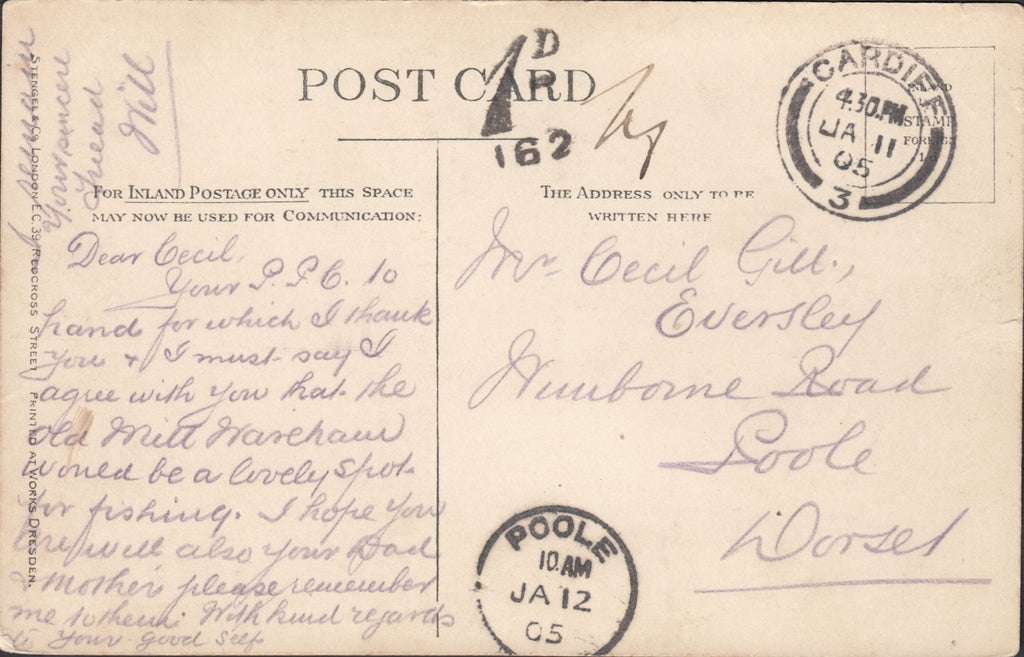 POST CARD
1D
162
CARDIFF
4.30.PM
JA 11
05
3
STAMP
FOREIGN
FOR INLAND POSTAGE ONLY THIS SPACE
MAY NOW BE USED FOR COMMUNICATION:
THE ADDRESS ONLY TO BE
WRITTEN HERE
Dear Cecil,
Your P.P.C. to
hand for which I thank
you & I must say I
agree with you that the
Old Mill Wareham
would be a lovely spot
for fishing. I hope you
are well also your Dad
& Mother, please remember
me to them. With kind regards
to your good self
I remain
Your sincere
friend
Will
Mr Cecil Gill.,
Eversley
Wimborne Road
Poole
Dorset
POOLE
10.AM
JA 12
05
STENGEL & Co, LONDON E.C. 39 REDCROSS STREET PRINTED AT WORKS DRESDEN.